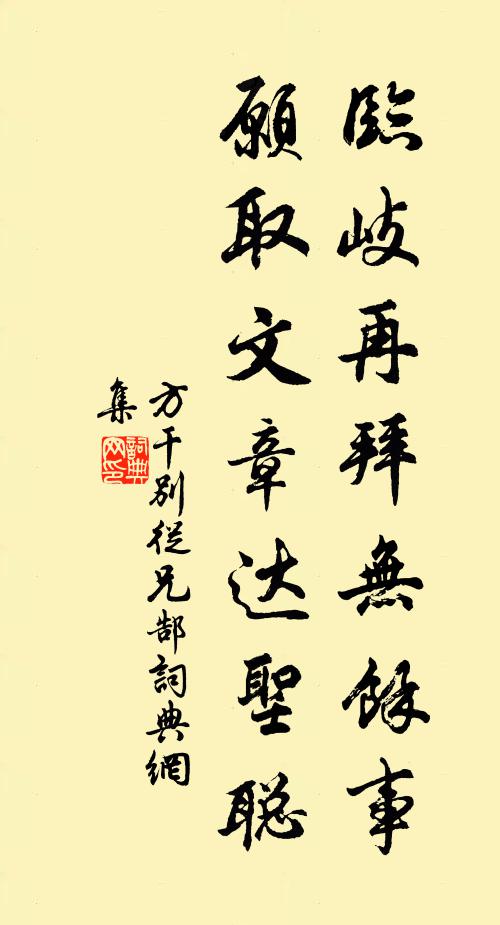 臨岐再拜無餘事
願取文章达聖聡
方干别從兄郜詞典網
集
詞典网印